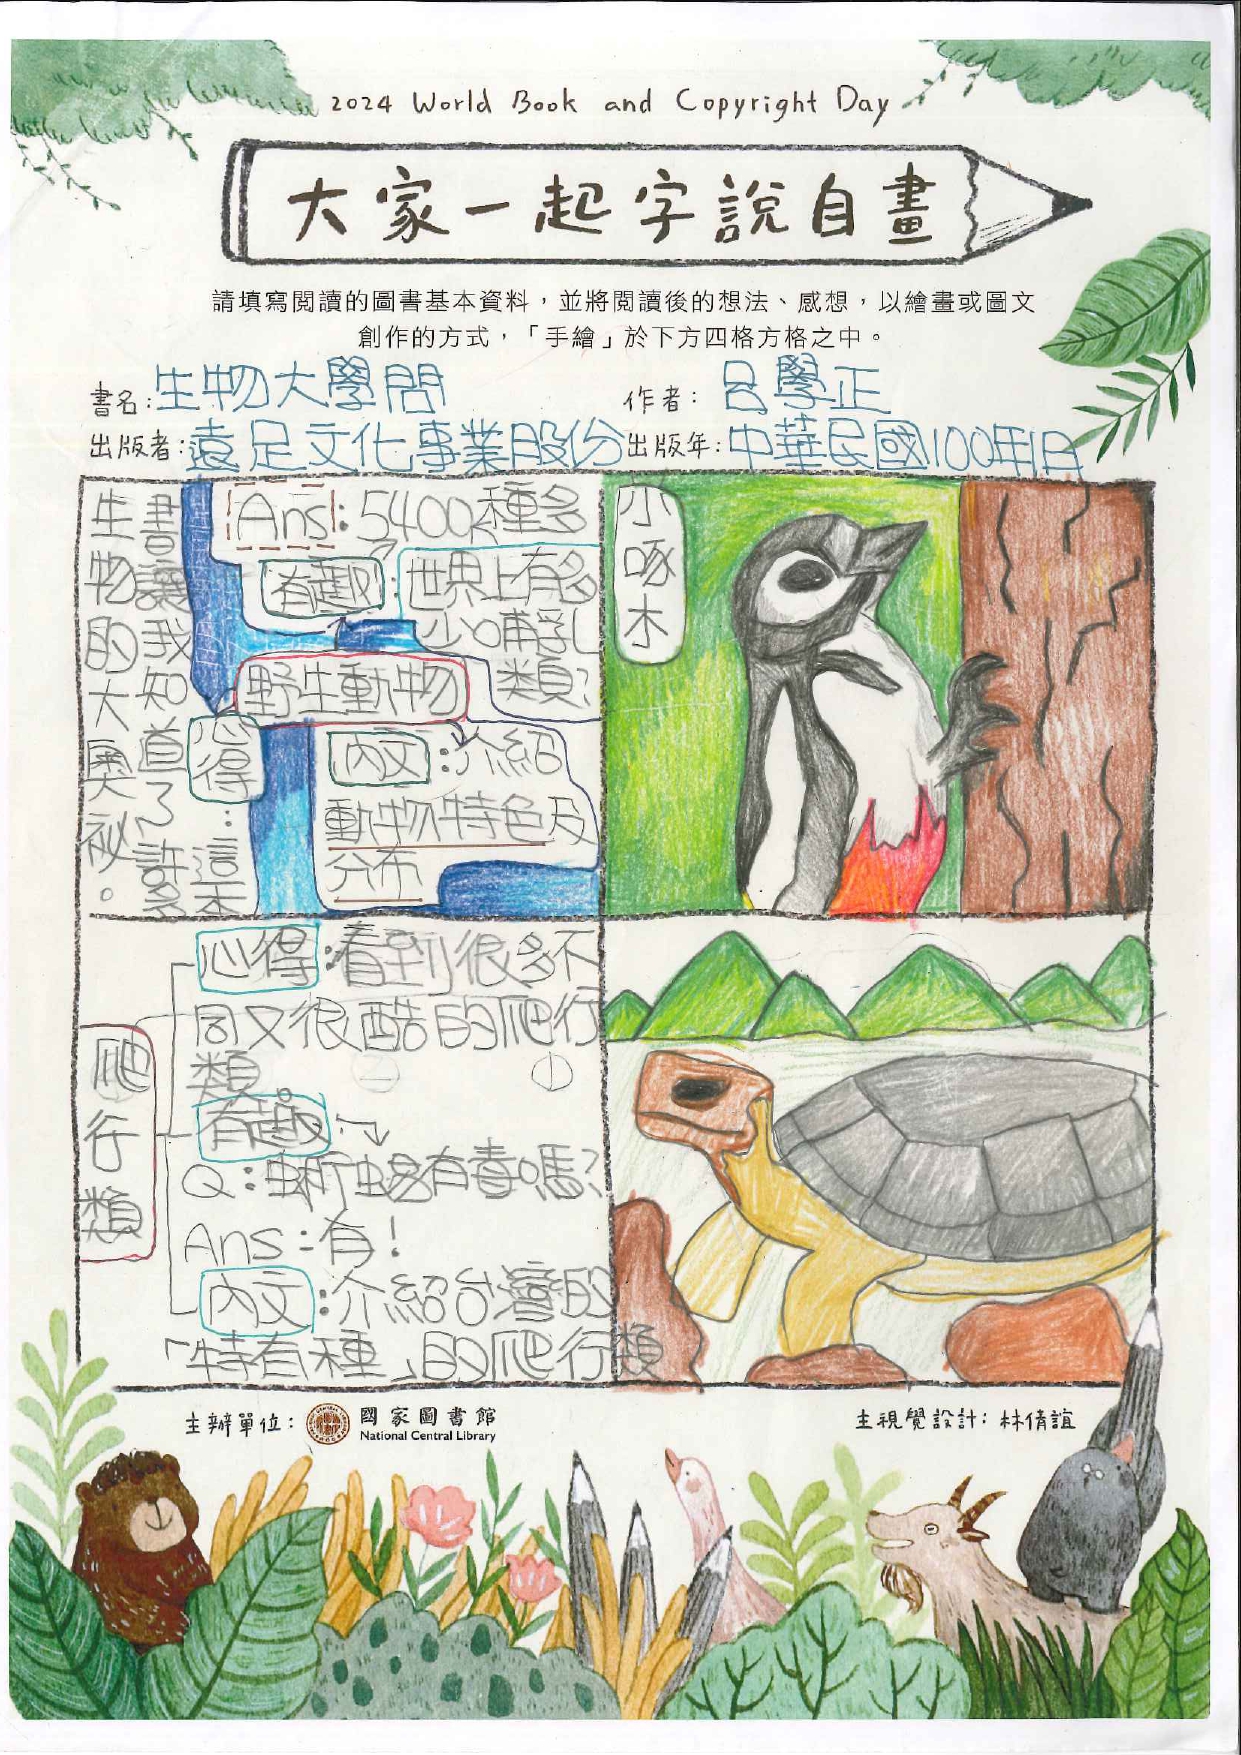 2024 World Book and Copyright Day
大家一起字說自畫
請填寫閱讀的圖書基本資料，並將閱讀後的想法、感想，以繪畫或圖文
創作的方式，「手繪」於下方四格方格之中。
書名：生物大學問
作者：呂學正
出版者：遠足文化事業股份
出版年：中華民國100年1月
Ans：5400種多
有趣：世界上有多
少哺乳
類？
野生動物
內文：介紹
動物特色及
分布
心得：這本
書讓我知道了許多
生物的大奧祕。
小啄木
爬行類
心得：看到很多不
同又很酷的爬行
類。
有趣：
Q：蜥蜴有毒嗎？
Ans：有！
內文：介紹台灣的
「特有種」的爬行類
主辦單位：國家圖書館
National Central Library
主視覺設計：林倩誼